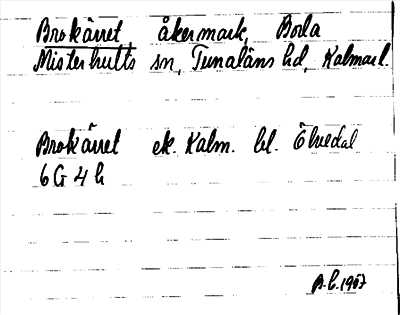 Brokärret, åkermark, Boda
Misterhults sn, Tunaläns hd, Kalmar l.
Brokärret ek. Kalm. bl. Ölvedal
6G 4h
B.C. 1957